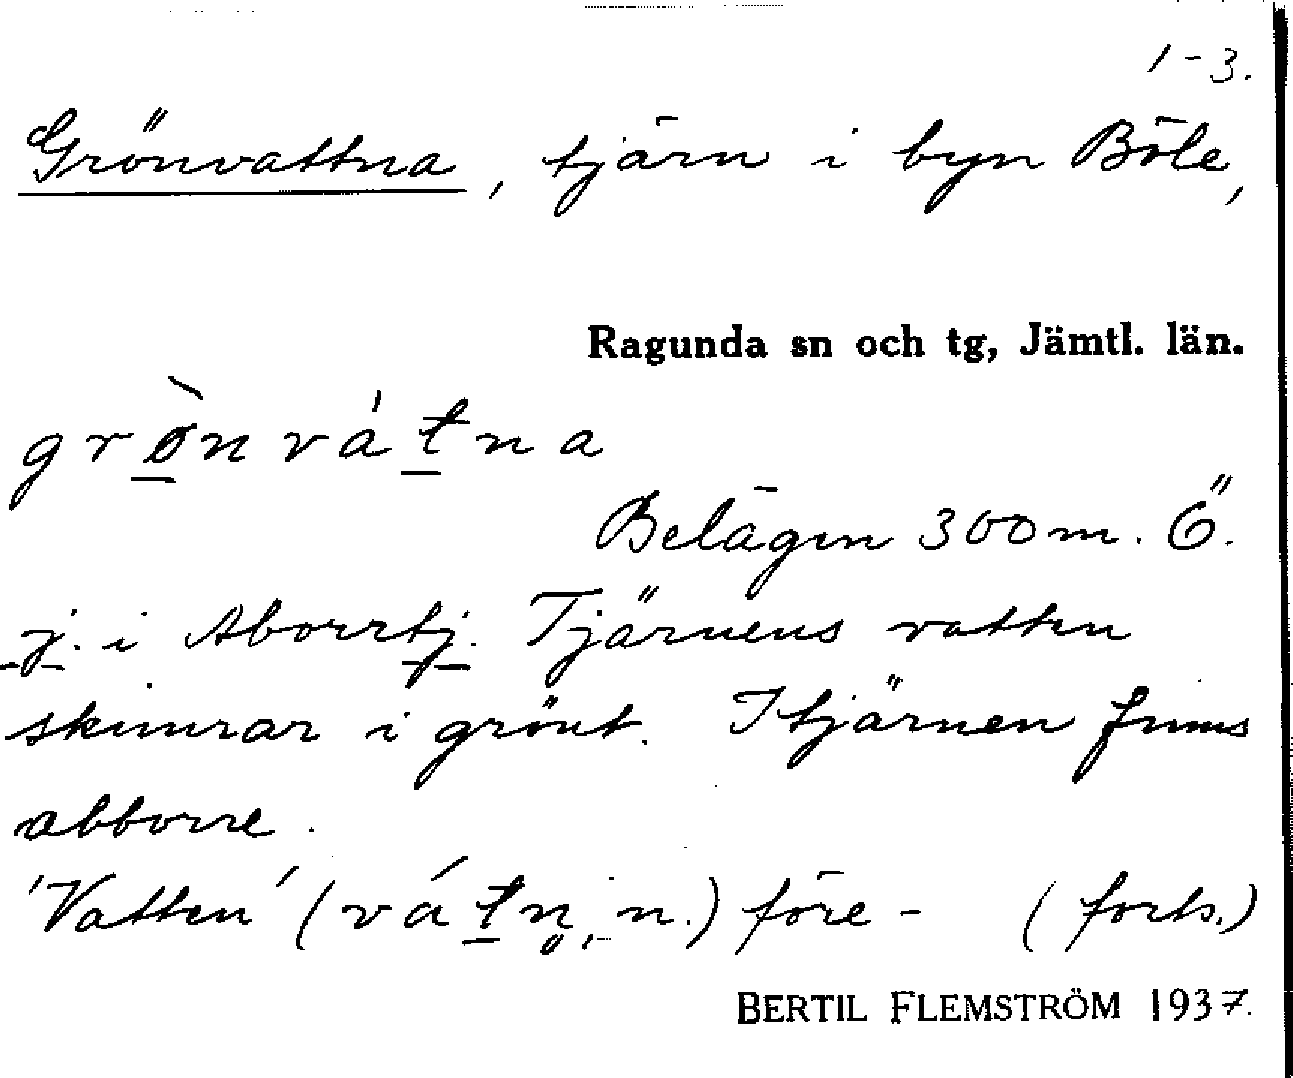 1-3.
Grönvattna, tjärn i byn Böle,
Ragunda sn och tg, Jämtl. län.
grø̠̀nvátna
Belägen 300 m. Ö.
j. i Aborrtj. Tjärnens vatten
skimrar i grönt. I tjärnen finns
abborre.
'Vatten' (vátn̥, n.) före- (forts.)
BERTIL FLEMSTRÖM 1937.